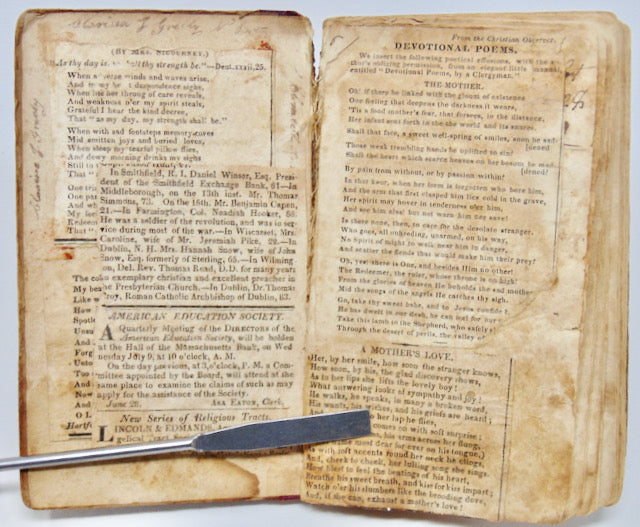 (BY MRS. SIGOURNEY.)
"As thy day is, so shall thy strength be."—Deut. xxxiii, 25.
When adverse winds and waves arise,
And in my heart despondence sighs,
When life her throng of care reveals,
And weakness o'er my spirit steals,
Grateful I hear the kind decree,
That "as my day, my strength shall be."
When with sad footsteps memory roves
Mid smitten joys and buried loves,
When sleep my tearful pillow flies,
And dewy morning drinks my sighs
Still to
That "
One tri
One pa
And wh
My foo
Redeem
That "
In Smithfield, R. I. Daniel Winsor, Esq. Presi-
dent of the Smithfield Exchange Bank, 61—In
Middleborough, on the 13th inst. Mr. Thomas
Simmons, 73. On the 16th. Mr. Benjamin Capen,
21.—In Farmington, Col. Noadiah Hooker, 86.
He was a soldier of the revolution, and was in ser-
vice during most of the war.—In Wiscasset, Mrs.
Caroline, wife of Mr. Jeremiah Pike, 22.—In
Dublin, N. H. Mrs. Hannah Snow, wife of John
Snow, Esq. formerly of Sterling, 65.—In Wilming-
ton, Del. Rev. Thomas Read, D.D. for many years
exemplary christian and excellent preacher in
he Presbyterian Church.—In Dublin, Dr. Thomas
Troy, Roman Catholic Archbishop of Dublin, 83.
The
My
Like
How
Spotl
Unsu
And
Forg
Unto
Too
Now
And
O l
Hartf
AMERICAN EDUCATION SOCIETY.
A Quarterly Meeting of the DIRECTORS of the
American Education Society, will be holden
at the Hall of the Massachusetts Bank, on Wed
nesday July 9, at 10 o'clock, A. M.
On the day previous, at 3, o'clock, P. M. a Com-
mittee appointed by the Board, will attend at the
same place to examine the claims of such as may
apply for the assistance of the Society.
June 28. ASA EATON, Clerk.
New Series of Religious Tracts.
LINCOLN & EDMANDS,
gelical Tract
From the Christian Observer.
DEVOTIONAL POEMS.
We insert the following poetical effusions, with the
thor's obliging permission, from an elegant little manual,
entitled "Devotional Poems, by a Clergyman."
THE MOTHER.
Oh! if there be linked with the gloom of existence
One feeling that deepens the darkness it wears,
'Tis a fond mother's fear, that foresees, in the distance,
Her infant sent forth to the world and its snares.
Shall that face, a sweet well-spring of smiles, soon be sad-
[dened
Those weak trembling hands be uplifted to sin?
Shall the heart which scarce heaves on her bosom be mad-
[dened
By pain from without, or by passion within?
In that hour, when her form is forgotten who bore him,
And the arm that first clasped him lies cold in the grave,
Her spirit may hover in tenderness o'er him,
And see him sink but not warn him nor save!
Is there none, then, to care for the desolate stranger,
Who goes, all unheeding, unarmed, on his way,
No Spirit of might to walk near him in danger,
And scatter the fiends that would make him their prey?
Oh, yes! there is One, and besides Him no other!
The Redeemer, the ruler, whose throne is on high!
From the glories of heaven He beholds the sad mother,
Mid the songs of the angels He catches thy sigh.
Go, take thy sweet babe, and to Jesus confide
He has dwelt in our flesh, he can feel for our
Take this lamb to the Shepherd, who safely
Through the desert of perils, the valley of
A MOTHER'S LOVE.
Her, by her smile, how soon the stranger knows,
How soon, by his, the glad discovery shows,
As to her lips she lifts the lovely boy!
What answering looks of sympathy and joy!
He walks, he speaks, in many a broken word,
His wants, his wishes, and his griefs are heard;
her lap he flies,
comes on with soft surprise;
his arms across her flung,
most dear for ever on his tongue,)
As with soft accents round her neck he clings,
And, cheek to cheek, her lulling song she sings.
How blest to feel the beatings of his heart,
Breathe his sweet breath, and kiss for kiss impart;
Watch o'er his slumbers like the brooding dove,
And, if she can, exhaust a mother's love!